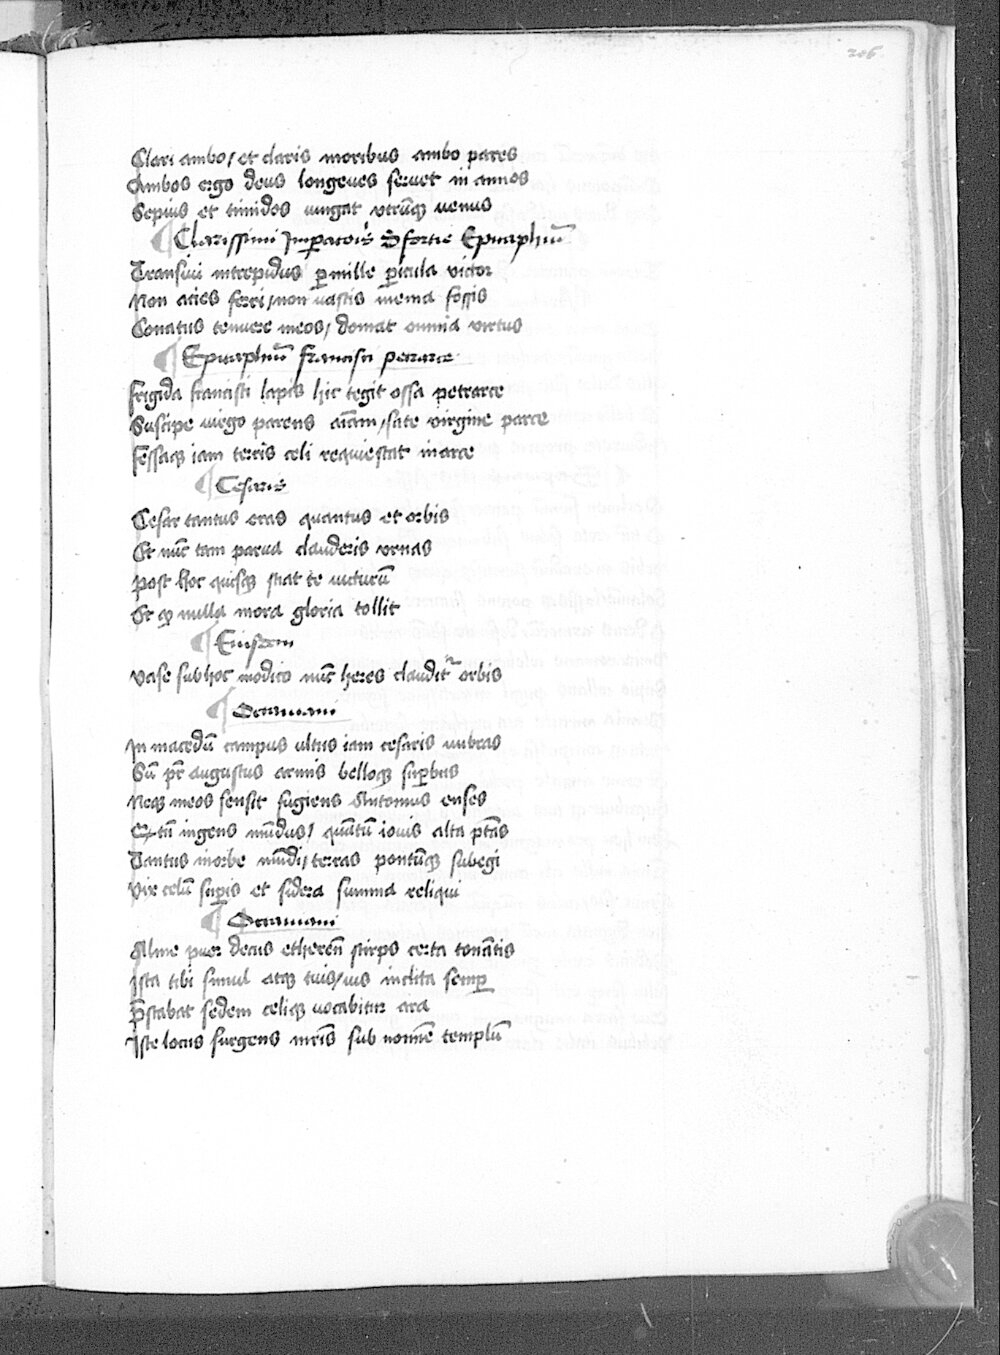 206
Clari ambo / et claris moribus ambo pares
Ambos ergo deus longeues servet in annos
Sepius et timidos iungat utrūq; venus
¶ Clarissimi Imperatoris Sfortie Epitaphiū
Transivi intrepidus p mille picula victor
Non acies ferri / non vastis menia fossis
Conatus tenuere meos / domat omnia virtus
¶ Epitaphiū francisci petrarce
frigida francisci lapis hic tegit ossa petrarce
Suscipe virgo parens aīam / sate virgine parce
fessaq; iam terris celi requiescat in arce
¶ Cesaris
Cesar tantus eras quantus et orbis
Et nūc tam parva clauderis urnas
post hoc quisq; sciat te
Et q nulla mora gloria tollit
¶ Eiusdem
Vase sub hoc modico nūc heres claudit orbis
¶ Octaviani
In macedū campus ultus iam cesaris umbras
Sū pr augustus armis belloq; supbus
Neq; meos sensit fugiens Antonius enses
Et tū ingens mūdus / quātū iovis alta ptās
Tantus in orbe mūdi / terras pontūq; subegi
Vix celū supis et sidera summa reliqui
¶ Octaviani
Alme puer decus ethereū stirps certa tonātis
Ista tibi simul atq; tuis / ius inclita semp
pstabat sedem celiq; vocabitur ara
Iste locus surgens nris sub nomīe templū